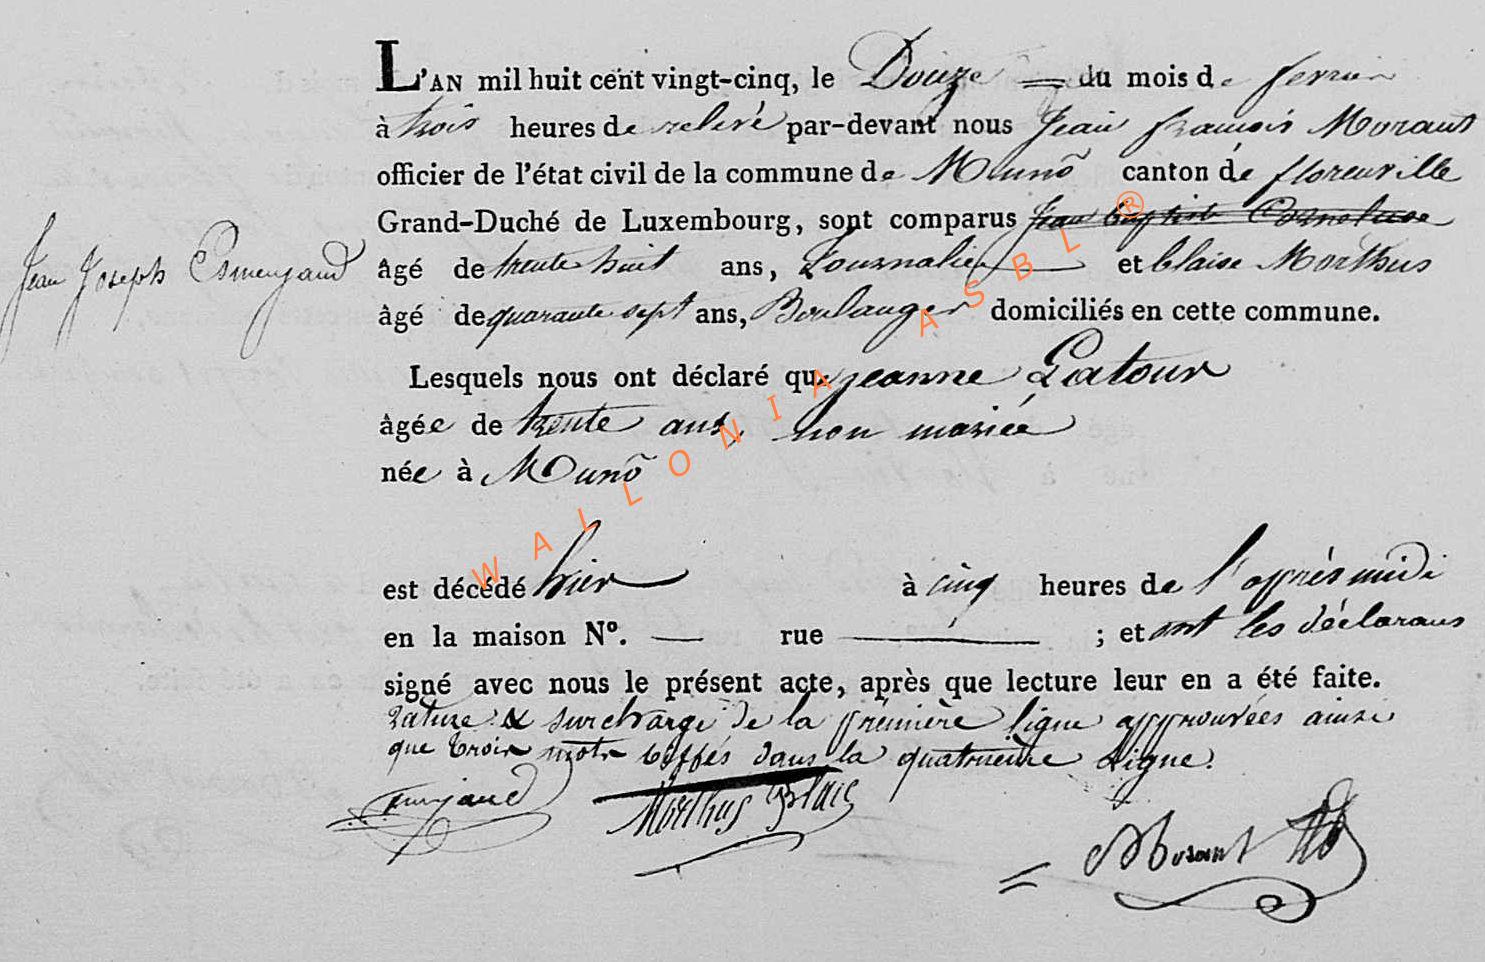 L'AN mil huit cent vingt-cinq, le Douze = du mois de fevrier
à trois heures de relevé par-devant nous Jean françois Morant
officier de l'état civil de la commune de Munõ canton de florenville
Grand-Duché de Luxembourg, sont comparus Jean baptiste
Jean Joseph Esmenjaud
âgé de trente huit ans, Journalier et blaise Morthus
âgé de quarante sept ans, Boulanger domiciliés en cette commune.
Lesquels nous ont déclaré que jeanne Latour
âgée de trente ans, non mariée
née à Munõ
est décédé hier à cinq heures de l'apprés midi
en la maison N°. — rue — ; et ont les déclarans
signé avec nous le présent acte, après que lecture leur en a été faite.
rature & surcharge de la prémière ligne approuvées ainsi
que trois mots biffés dans la quatrieme Ligne.
Morthus Blaise
Morant
WALLONIA ASBL ®